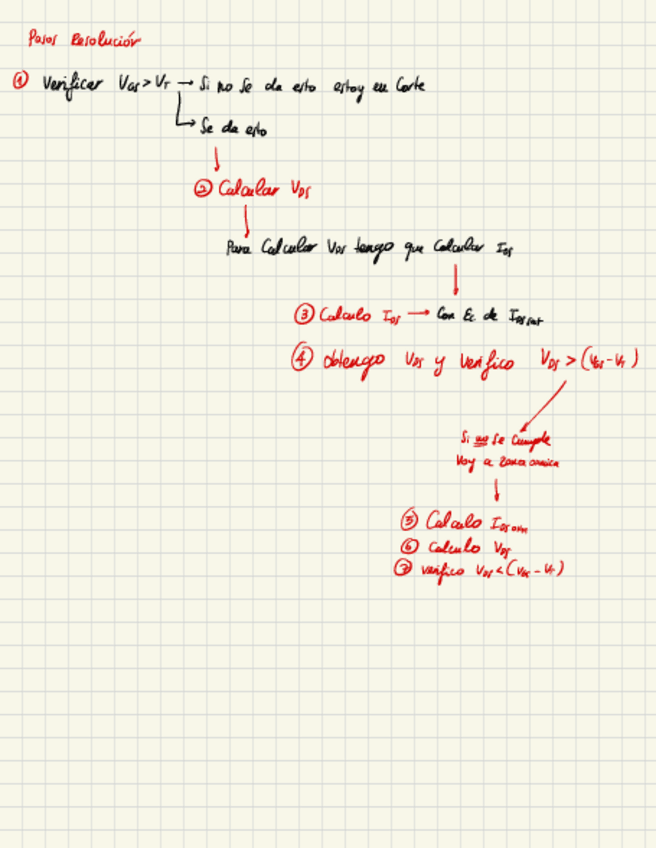 Pasos Resolución
① Verificar VGS > VT → Si no se da esto estoy en Corte
→ Se da esto
② Calcular VDS
Para Calcular VDS tengo que Calcular IDS
③ Calculo IDS → Con Ec de IDSsat
④ obtengo VDS y verifico VDS > (VGS - VT)
Si no se cumple
Voy a zona omica
⑤ Calculo IDSohm
⑥ calculo VDS
⑦ verifico VDS < (VGS - VT)